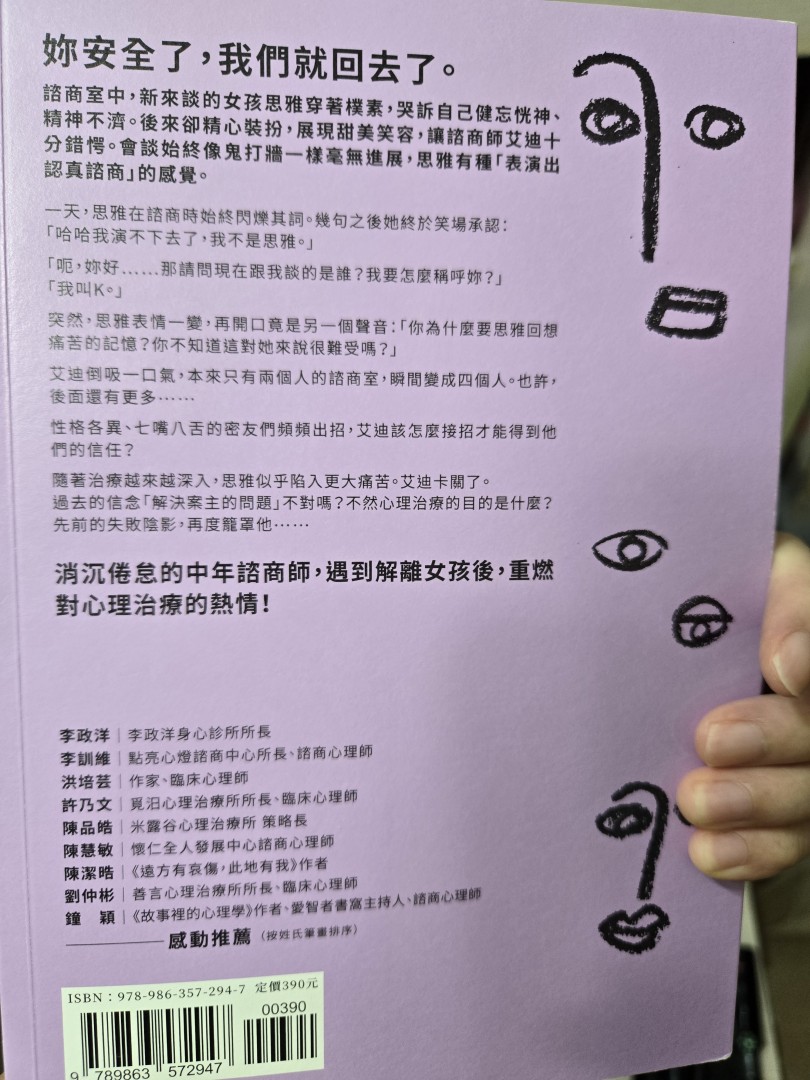 妳安全了，我們就回去了。
諮商室中，新來談的女孩思雅穿著樸素，哭訴自己健忘恍神、
精神不濟。後來卻精心裝扮，展現甜美笑容，讓諮商師艾迪十
分錯愕。會談始終像鬼打牆一樣毫無進展，思雅有種「表演出
認真諮商」的感覺。
一天，思雅在諮商時始終閃爍其詞。幾句之後她終於笑場承認：
「哈哈我演不下去了，我不是思雅。」
「呃，妳好……那請問現在跟我談的是誰？我要怎麼稱呼妳？」
「我叫K。」
突然，思雅表情一變，再開口竟是另一個聲音：「你為什麼要思雅回想
痛苦的記憶？你不知道這對她來說很難受嗎？」
艾迪倒吸一口氣，本來只有兩個人的諮商室，瞬間變成四個人。也許，
後面還有更多……
性格各異、七嘴八舌的密友們頻頻出招，艾迪該怎麼接招才能得到他
們的信任？
隨著治療越來越深入，思雅似乎陷入更大痛苦。艾迪卡關了。
過去的信念「解決案主的問題」不對嗎？不然心理治療的目的是什麼？
先前的失敗陰影，再度籠罩他……
消沉倦怠的中年諮商師，遇到解離女孩後，重燃
對心理治療的熱情！
李政洋｜李政洋身心診所所長
李訓維｜點亮心燈諮商中心所長、諮商心理師
洪培芸｜作家、臨床心理師
許乃文｜覓汨心理治療所所長、臨床心理師
陳品皓｜米露谷心理治療所 策略長
陳慧敏｜懷仁全人發展中心諮商心理師
陳潔晧｜《遠方有哀傷，此地有我》作者
劉仲彬｜善言心理治療所所長、臨床心理師
鐘　穎｜《故事裡的心理學》作者、愛智者書窩主持人、諮商心理師
感動推薦（按姓氏筆畫排序）
ISBN：978-986-357-294-7 定價390元
00390
9 789863 572947